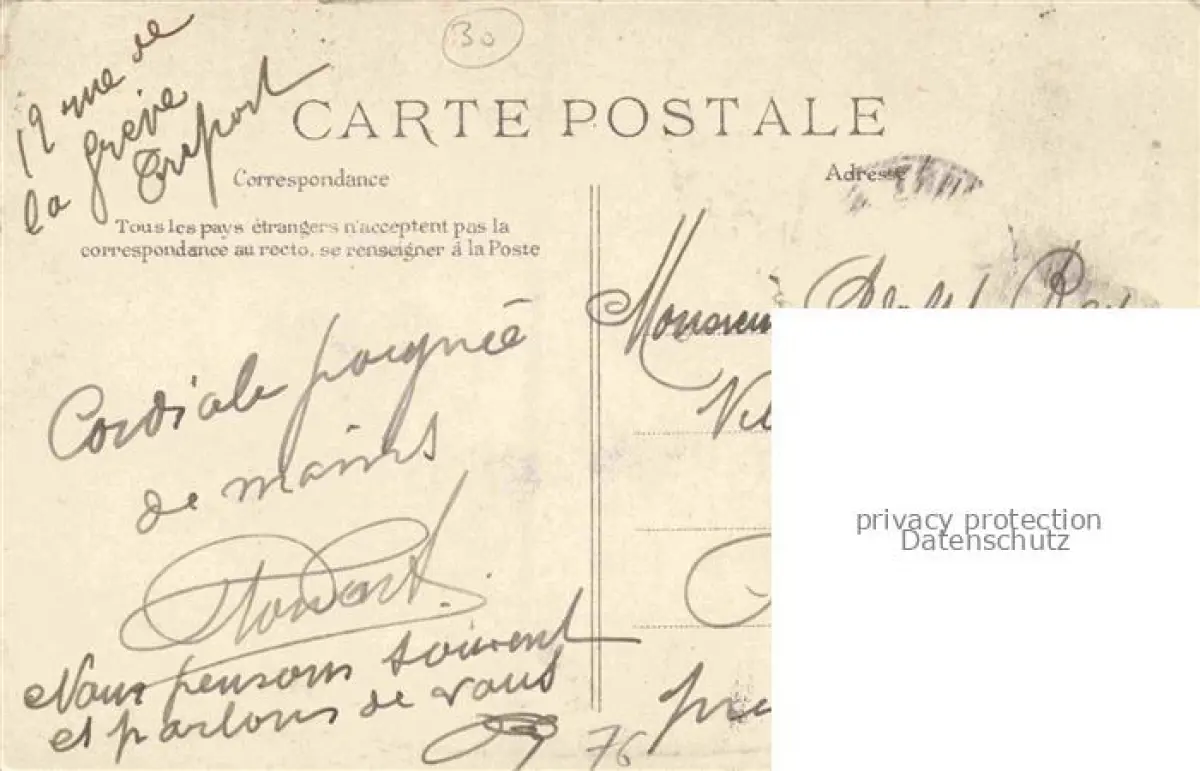 30
19 rue de
la Grève
Tréport
CARTE POSTALE
Correspondance
Adresse
Tous les pays étrangers n'acceptent pas la
correspondance au recto, se renseigner á la Poste
Cordiale poignée
de mains
Nous pensons souvent
et parlons de vous
76
Monsieur
privacy protection
Datenschutz